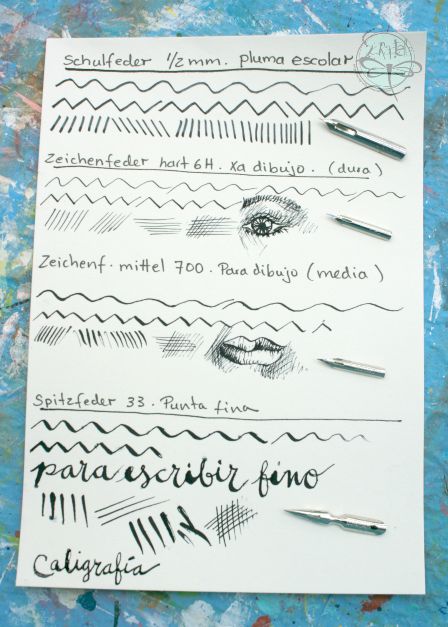 Schulfeder 1/2 mm. pluma escolar
Zeichenfeder hart 6H. Xa dibujo. (dura)
Zeichenf. mittel 700. Para dibujo (media)
Spitzfeder 33. Punta fina
para escribir fino
Caligrafía